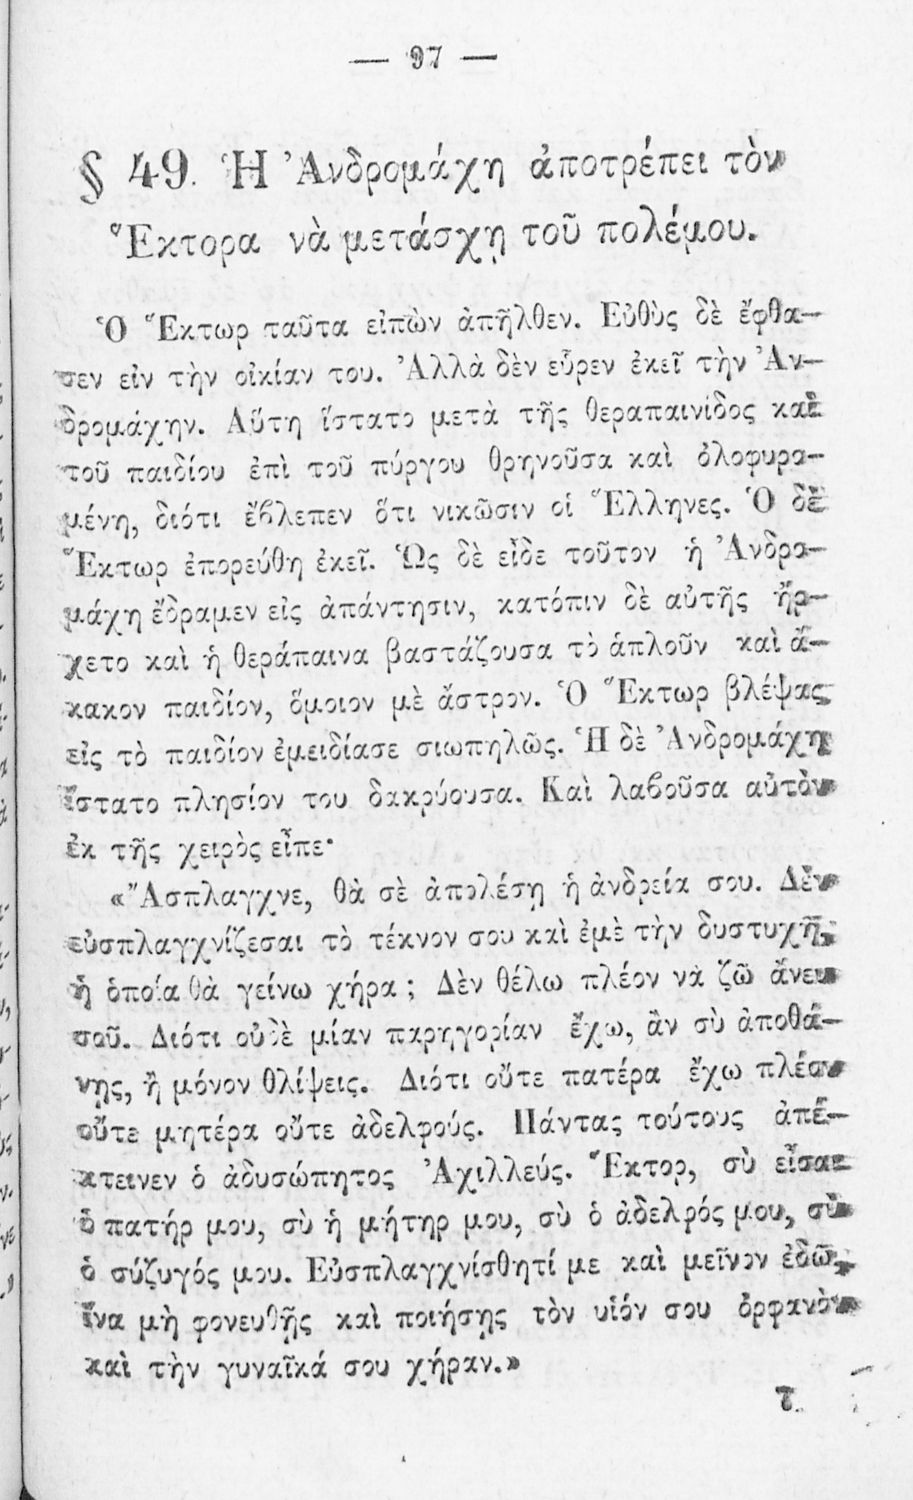 — 97 —
§ 49. Ἡ Ἀνδρομάχη ἀποτρέπει τὸν
Ἕκτορα νὰ μετάσχῃ τοῦ πολέμου.
Ὁ Ἕκτωρ ταῦτα εἰπὼν ἀπῆλθεν. Εὐθὺς δὲ ἔφθα—
σεν εἰν τὴν οἰκίαν του. Ἀλλὰ δὲν εὗρεν ἐκεῖ τὴν Ἀν—
δρομάχην. Αὕτη ἵστατο μετὰ τῆς θεραπαινίδος καὶ
τοῦ παιδίου ἐπὶ τοῦ πύργου θρηνοῦσα καὶ ὀλοφυρο—
μένη, διότι ἔβλεπεν ὅτι νικῶσιν οἱ Ἕλληνες. Ὁ δὲ
Ἕκτωρ ἐπορεύθη ἐκεῖ. Ὡς δὲ εἶδε τοῦτον ἡ Ἀνδρο—
μάχη ἔδραμεν εἰς ἀπάντησιν, κατόπιν δὲ αὐτῆς ἤρ—
χετο καὶ ἡ θεράπαινα βαστάζουσα τὸ ἁπλοῦν καὶ ἄ—
κακον παιδίον, ὅμοιον μὲ ἄστρον. Ὁ Ἕκτωρ βλέψας
εἰς τὸ παιδίον ἐμειδίασε σιωπηλῶς. Ἡ δὲ Ἀνδρομάχη
ἵστατο πλησίον του δακρύουσα. Καὶ λαβοῦσα αὐτὸν
ἐκ τῆς χειρὸς εἶπε·
«Ἄσπλαγχνε, θὰ σὲ ἀπολέσῃ ἡ ἀνδρεία σου. Δὲν
εὐσπλαγχνίζεσαι τὸ τέκνον σου καὶ ἐμὲ τὴν δυστυχῆ,
ἡ ὁποία θὰ γείνω χήρα ; Δὲν θέλω πλέον νὰ ζῶ ἄνευ
σοῦ. Διότι οὐδὲ μίαν παρηγορίαν ἔχω, ἂν σὺ ἀποθά—
νῃς, ἢ μόνον θλίψεις. Διότι οὔτε πατέρα ἔχω πλέον
οὔτε μητέρα οὔτε ἀδελφούς. Πάντας τούτους ἀπέ—
κτεινεν ὁ ἀδυσώπητος Ἀχιλλεύς. Ἕκτορ, σὺ εἶσαι
ὁ πατήρ μου, σὺ ἡ μήτηρ μου, σὺ ὁ ἀδελφός μου, σὺ
ὁ σύζυγός μου. Εὐσπλαγχνίσθητί με καὶ μεῖνον ἐδῶ,
ἵνα μὴ φονευθῇς καὶ ποιήσῃς τὸν υἱόν σου ὀρφανὸν
καὶ τὴν γυναῖκά σου χήραν.»
7.